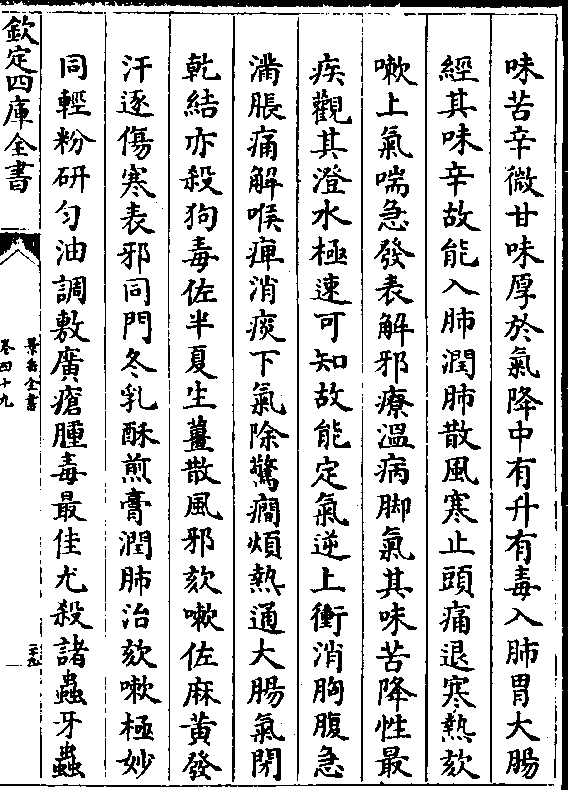 味苦辛微甘味厚於氣降中有升有毒入肺胃大腸
經其味辛故能入肺潤肺散風寒止頭痛退寒熱欬
嗽上氣喘急發表解邪療溫病脚氣其味苦降性最
疾觀其澄水極速可知故能定氣逆上衝消胸腹急
滿脹痛解喉痺消痰下氣除驚癇煩熱通大腸氣閉
乾結亦殺狗毒佐半夏生薑散風邪欬嗽佐麻黄發
汗逐傷寒表邪同門冬乳酥煎膏潤肺治欬嗽極妙
同輕粉研匀油調敷廣瘡腫毒最佳尤殺諸蟲牙蟲
欽定四庫全書
景岳全書
卷四十九